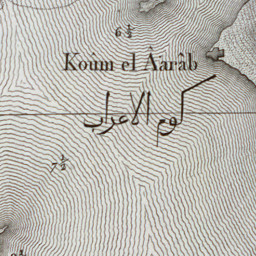 6 1/2
Koûm el Àarâb
كوم الاعراب
7 1/2